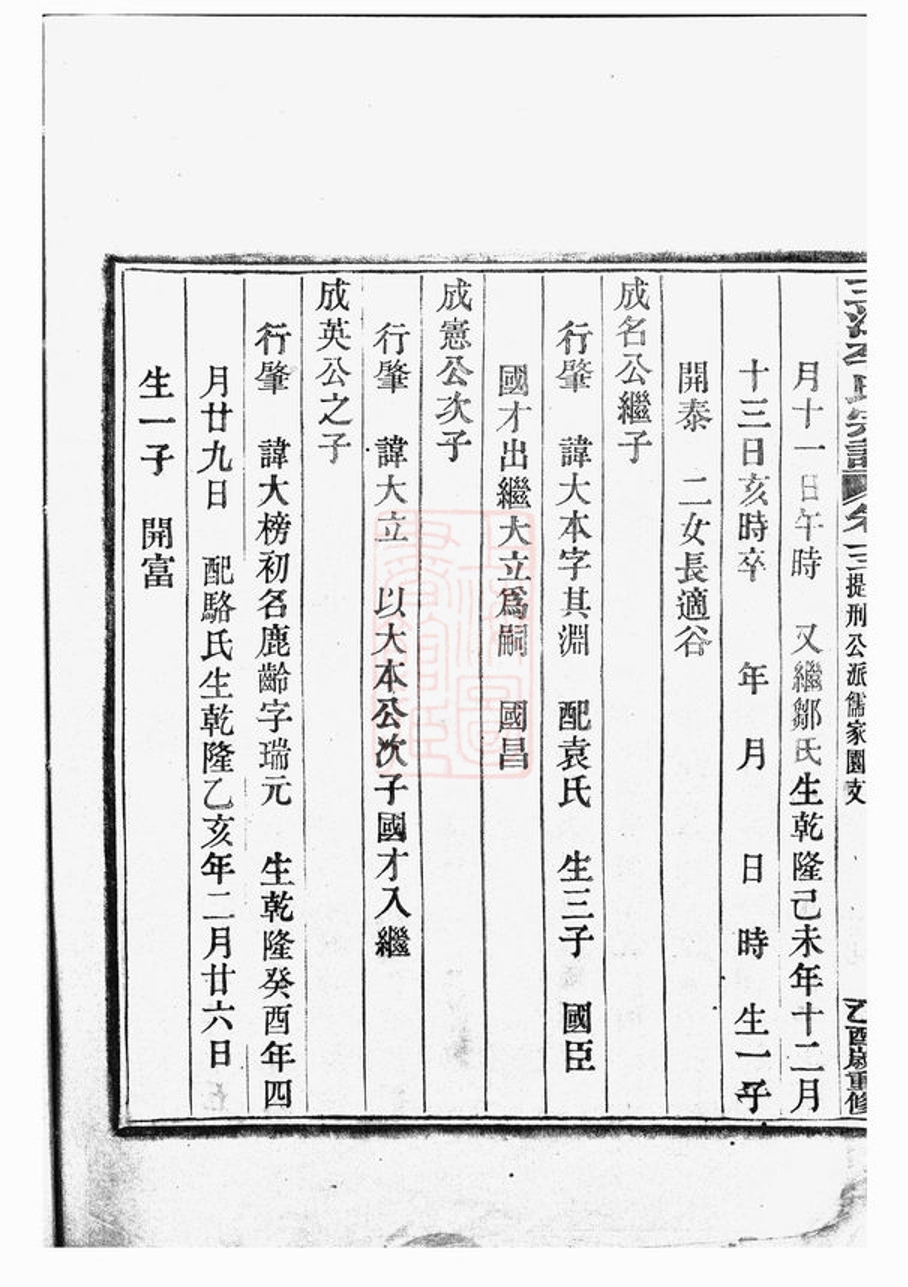 李氏宗譜 卷三 提刑公派儒家園支 乙酉歲重修
月十一日午時 又繼鄒氏生乾隆己未年十二月
十三日亥時卒 年 月 日 時 生一子
開泰 二女長適谷
成名公繼子
行肇 諱大本字其淵 配袁氏 生三子 國臣
國才出繼大立爲嗣 國昌
成憲公次子
行肇 諱大立 以大本公次子國才入繼
成英公之子
行肇 諱大榜初名鹿齡字瑞元 生乾隆癸酉年四
月廿九日 配駱氏生乾隆乙亥年二月廿六日
生一子 開富